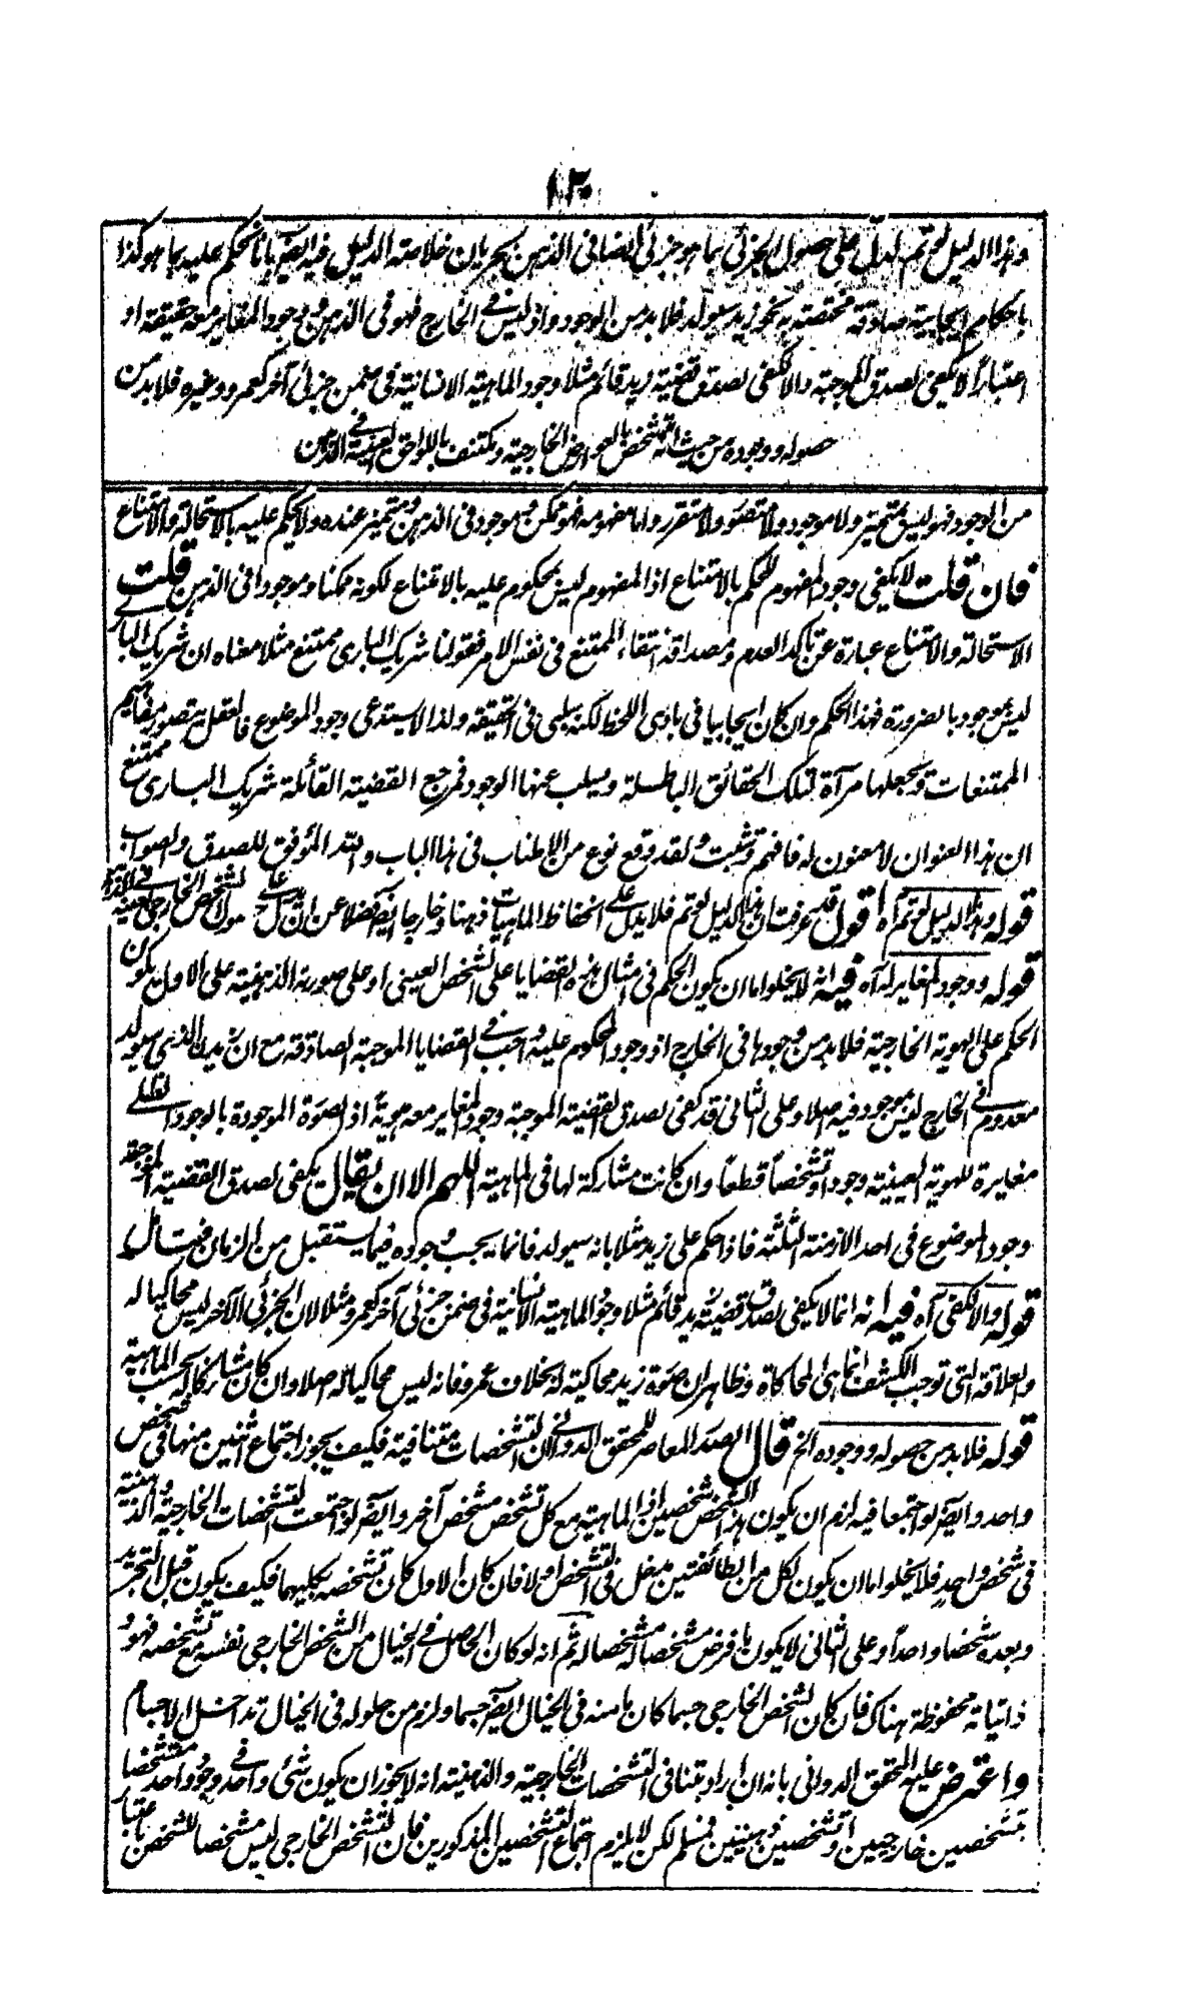 ١٢٠
وهذا الدليل لو تم لدل على حصول الجزئي بما هو جزئي ايضا في الذهن بجريان خلاصة الدليل فيه ايضا بانا نحكم عليه بما هو كذا
باحكام ايجابية صادقة مختصة به نحو زيد سيولد فلا بد من الوجود واذ ليس في الخارج فهو في الذهن ووجود المغاير معه حقيقة او
اعتباراً لا يكفي لصدق الموجبة والا لكفى لصدق قضية زيد قائم مثلا وجود الماهية الانسانية في ضمن جزئي آخر كعمرو وغيره فلا بد من
حصوله ووجوده من حيث انه تشخص بالعوارض الخارجية ومكتنف باللواحق العينية في الذهن
من الوجود فهو ليس بمتميز ولا موجود ولا متصور ولا متقرر واما مفهومه فهو ممكن وموجود في الذهن ومتميز عنده ولا يحكم عليه بالاستحالة والامتناع
فان قلت لا يكفي وجود المفهوم للحكم بالامتناع اذ المفهوم ليس بمحكوم عليه بالامتناع لكونه ممكنا وموجودا في الذهن قلت
الاستحالة والامتناع عبارة عن تاكد العدم ومصداقه انتفاء الممتنع في نفس الامر فقولنا شريك الباري ممتنع مثلا معناه ان شريك الباري
ليس بموجود بالضرورة فهذا الحكم وان كان ايجابيا في بادى اللحظ لكنه سلبي في الحقيقة ولذا لا يستدعى وجود الموضوع فالعقل يتصور مفاهيم
الممتنعات ويجعلها مرآة لتلك الحقائق الباطلة ويسلب عنها الوجود فمرجع القضية القائلة شريك الباري ممتنع
ان هذا العنوان لا معنون له فافهم وتثبت ولقد وقع نوع من الاطناب في هذا الباب والله الموفق للصدق والصواب
قوله وهذا الدليل لو تم آه اقول قد عرفت ان هذا الدليل لو تم فلا يدل على انحفاظ الماهيات ذهنا وخارجا ايضا فضلا عن ان يدل على حصول الشخص الخارجي بعينه في الاذهان
قوله ووجود المغاير له آه فيه انه لا يخلو اما ان يكون الحكم في امثال هذه القضايا على الشخص العيني او على صورته الذهنية على الاول يكون
الحكم على الهوية الخارجية فلا بد من وجودها في الخارج اذ وجود المحكوم عليه واجب في القضايا الموجبة الصادقة مع ان زيد الذي سيولد
معدوم في الخارج ليس بموجود فيه اصلا وعلى الثاني قد كفى لصدق القضية الموجبة وجود المغاير معه هوية اذ الصورة الموجودة بالوجود الظلي
مغايرة للهوية العينية وجودا وتشخصاً قطعاً وان كانت مشاركة لها في الماهية اللهم الا ان يقال يكفى لصدق القضية الموجبة
وجود الموضوع في احد الازمنة الثلثة فاذا حكم على زيد مثلا بانه سيولد فانما يجب وجوده فيما يستقبل من الزمان فيتامل
قوله والا لكفى آه فيه انه انما لا يكفى لصدق قضية زيد قائم مثلا وجود الماهية الانسانية في ضمن جزئي آخر كعمرو مثلا لان الجزئي الآخر ليس محاكيا له
والعلاقة التي توجب الكشف انما هي المحاكاة وظاهر ان صورة زيد محاكية له بخلاف عمرو فانه ليس محاكيا له اصلا وان كان مشاركا له بحسب الماهية
قوله فلا بد من حصوله ووجوده الخ قال الصدر المعاصر للمحقق الدواني لان التشخصات متنافية فكيف يجوز اجتماع اثنين منها في شخص
واحد وايضا لو اجتمعا فيه لزم ان يكون هذا الشخص شخصين اذ الماهية مع كل تشخص مشخص آخر وايضا لو اجتمعت التشخصات الخارجية والذهنية
في شخص واحد فلا يخلو اما ان يكون لكل من الطائفتين مدخل في التشخص او لا فان كان الاول كان تشخصه بكليهما فكيف يكون قبل التجرد
وبعده شخصا واحداً وعلى الثاني لا يكون ما فرض مشخصا له مشخصا له ثم انه لو كان الحاصل في الخيال من الشخص الخارجي نفسه مع تشخصه فهو و
ذاتياته محفوظة هناك فان كان الشخص الخارجي جسما كان ما منه في الخيال ايضا جسما ولزم من حلوله في الخيال تداخل الاجسام
واعترض عليه المحقق الدواني بانه ان اراد بتنافي التشخصات الخارجية والذهنية انه لا يجوز ان يكون شئ واحد في وجود واحد متشخصا
بتشخصين خارجيين او تشخصين ذهنيين فمسلم لكن لا يلزم اجتماع التشخصين المذكورين فان التشخص الخارجي ليس مشخصا للشخص باعتبار